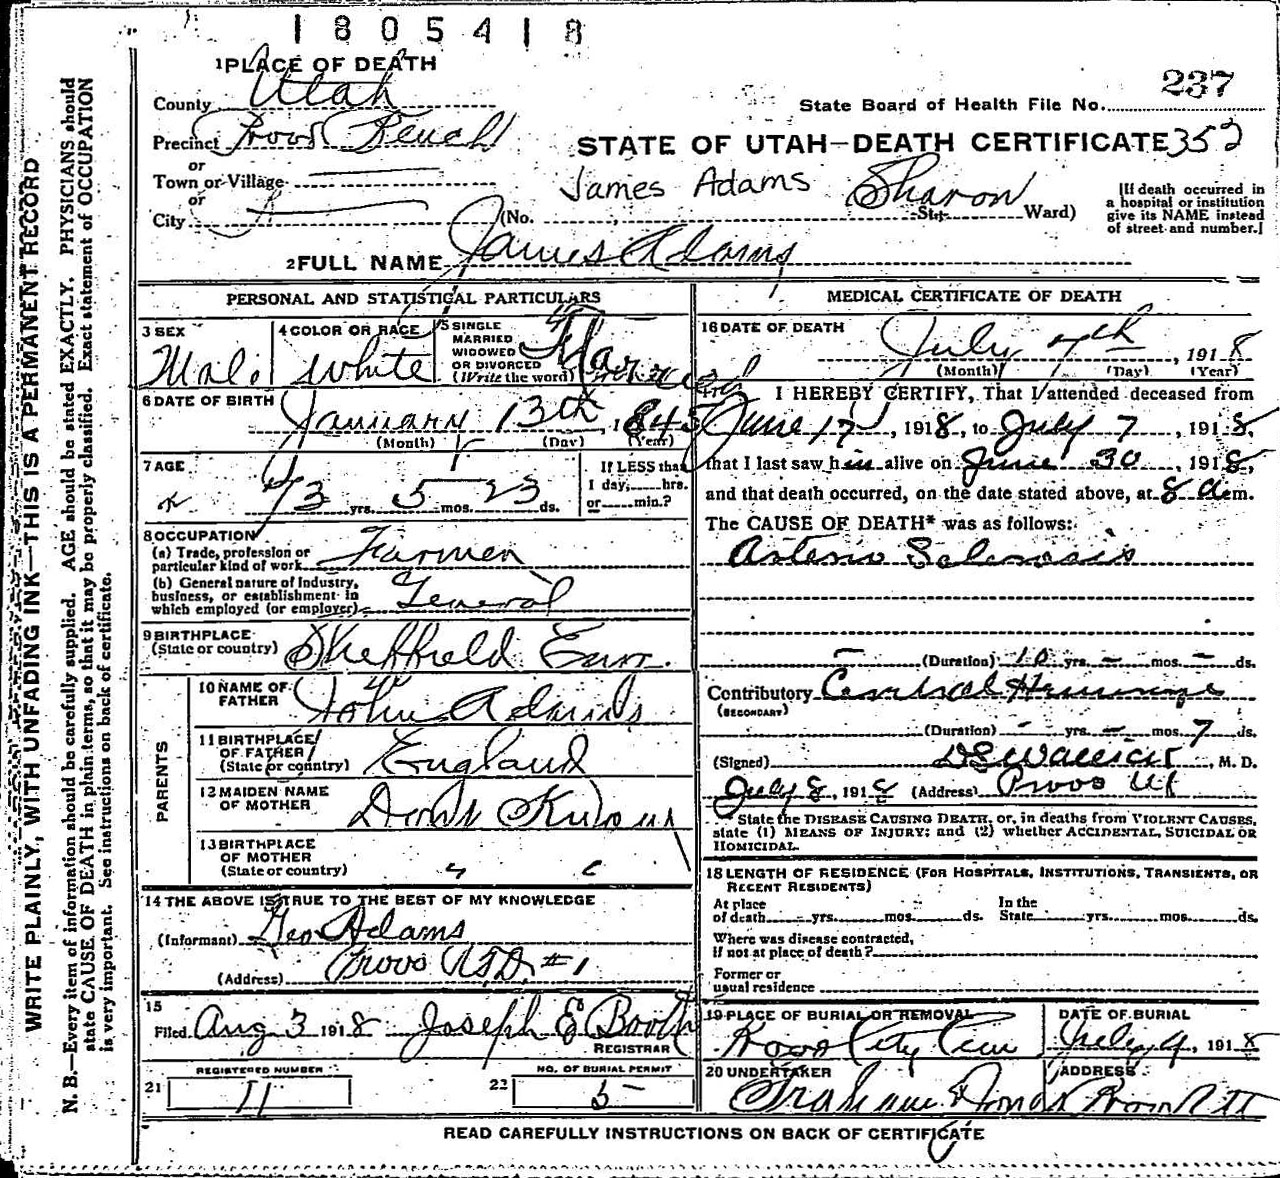 1805418
1 PLACE OF DEATH
County Utah
237
State Board of Health File No.
Precinct Provo Bench
STATE OF UTAH—DEATH CERTIFICATE 352
or
Town or Village
James Adams Sharon
or
City (No. St. Ward)
[If death occurred in a hospital or institution give its NAME instead of street and number.]
2 FULL NAME James Adams
PERSONAL AND STATISTICAL PARTICULARS
3 SEX
Male
4 COLOR OR RACE
White
5 SINGLE
MARRIED
WIDOWED
OR DIVORCED
(Write the word)
6 DATE OF BIRTH
January 13th, 1845
(Month) (Day) (Year)
7 AGE
73 yrs. 5 mos. 23 ds.
If LESS than
1 day, hrs.
or min.?
8 OCCUPATION
(a) Trade, profession or
particular kind of work Farmer
(b) General nature of Industry,
business, or establishment in
which employed (or employer) General
9 BIRTHPLACE
(State or country) Sheffield
PARENTS
10 NAME OF
FATHER John Adams
11 BIRTHPLACE
OF FATHER
(State or country) England
12 MAIDEN NAME
OF MOTHER
13 BIRTHPLACE
OF MOTHER
(State or country)
14 THE ABOVE IS TRUE TO THE BEST OF MY KNOWLEDGE
(Informant) Geo Adams
(Address) Provo R.F.D. #1
15
Filed Aug 3 1918 Joseph E Booth
REGISTRAR
REGISTERED NUMBER
21 11
NO. OF BURIAL PERMIT
22 5
MEDICAL CERTIFICATE OF DEATH
16 DATE OF DEATH
July 7th, 1918
(Month) (Day) (Year)
17 I HEREBY CERTIFY, That I attended deceased from
June 17, 1918, to July 7, 1918,
that I last saw him alive on June 30, 1918,
and that death occurred, on the date stated above, at 8 a.m.
The CAUSE OF DEATH* was as follows:
Arterio Sclerosis
(Duration) 10 yrs. – mos. – ds.
Contributory
(SECONDARY)
(Duration) – yrs. – mos. 7 ds.
(Signed) M. D.
July 8, 1918 (Address) Provo Ut
State the DISEASE CAUSING DEATH, or, in deaths from VIOLENT CAUSES,
state (1) MEANS OF INJURY; and (2) whether ACCIDENTAL, SUICIDAL OR
HOMICIDAL.
18 LENGTH OF RESIDENCE (FOR HOSPITALS, INSTITUTIONS, TRANSIENTS, OR
RECENT RESIDENTS)
At place
of death yrs. mos. ds.
In the
State yrs. mos. ds.
Where was disease contracted,
if not at place of death?
Former or
usual residence
19 PLACE OF BURIAL OR REMOVAL
Provo City Cem
DATE OF BURIAL
July 9, 1918
20 UNDERTAKER
ADDRESS
READ CAREFULLY INSTRUCTIONS ON BACK OF CERTIFICATE
WRITE PLAINLY, WITH UNFADING INK—THIS IS A PERMANENT RECORD
N. B.—Every item of information should be carefully supplied. AGE should be stated EXACTLY. PHYSICIANS should
state CAUSE OF DEATH in plain terms, so that it may be properly classified. Exact statement of OCCUPATION
is very important. See instructions on back of certificate.